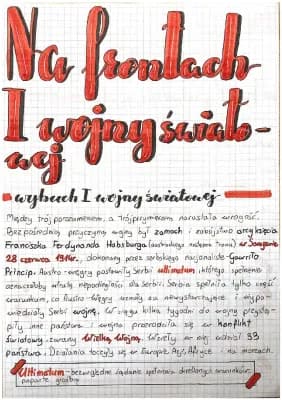 Na frontach
I wojny świato-
wej
- wybuch I wojny światowej -
Między trójporozumieniem, a Trójprzymierzem narastała wrogość.
Bezpośrednią przyczyną wojny był zamach i zabójstwo arcyksięcia
Franciszka Ferdynanda Habsburga (austriackiego następcy tronu) w Sarajewie
28 czerwca 1914r., dokonany przez serbskiego nacjonalistę - Gawriło
Princip. Austro-węgry postawiły Serbii ultimatum, którego spełnienie
oznaczałoby utratę niepodległości dla Serbii. Serbia spełniła tylko część
warunków, co Austro-Węgry uznały za niewystarczające i wypo-
wiedziały Serbii wojnę. W ciągu kilku tygodni do wojny przystą-
piły inne państwa i wojna przerodziła się w konflikt
światowy zwany Wielką Wojną. Wzięły w niej udział 33
państwa. Działania toczyły się w Europie, Azji, Afryce i na morzach.
Ultimatum - bezwzględne żądanie spełnienia określonych warunków,
poparte groźbą